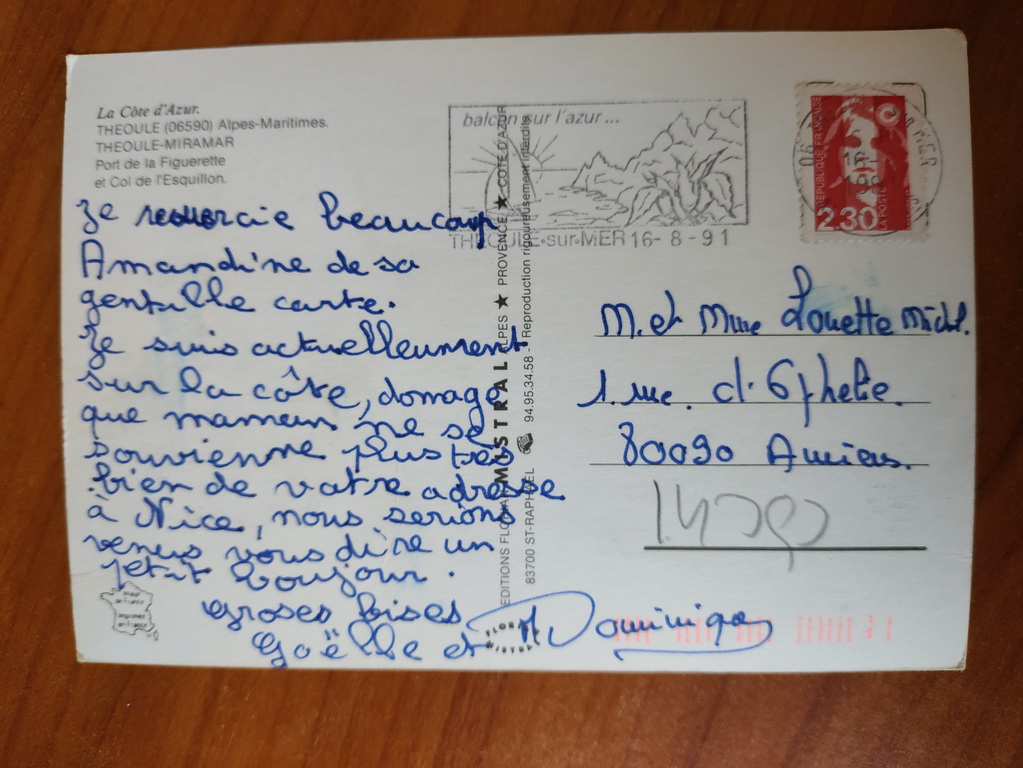 La Côte d'Azur.
THEOULE (06590) Alpes-Maritimes.
THEOULE-MIRAMAR
Port de la Figuerette
et Col de l'Esquillon.
Je remercie beaucoup
Amandine de sa
gentille carte.
Je suis actuellement
sur la côte, domage
que maman ne se
souvienne plus très
bien de votre adresse
à Nice, nous serions
venus vous dire un
petit boujour.
Groses bises
Gaëlle et Dominique
balcon sur l'azur...
THEOULE-sur-MER 16-8-91
RÉPUBLIQUE FRANÇAISE
LA POSTE
2.30
06
MER
M. et Mme Louette Michel.
1. rue. d'Ophelie.
80090 Amiens.
EDITIONS FLORAL MISTRAL ALPES ★ PROVENCE ★ COTE D'AZUR
83700 ST-RAPHAEL 94.95.34.58 - Reproduction rigoureusement interdite
FLORAL
MISTRAL